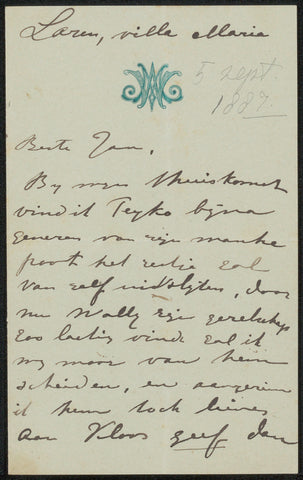 Laren, villa Maria
5 sept.
1887.
Beste Jan,
By myn thuiskomst
vind ik Teyko byna
genezen van zyn manke
poot het restje zal
van zelf uitslyten, daar
nu Wally zyn gezelschap
zoo lastig vindt zal ik
my maar van hem
scheiden, en aangezien
ik hem toch liever
aan Kloos geef dan